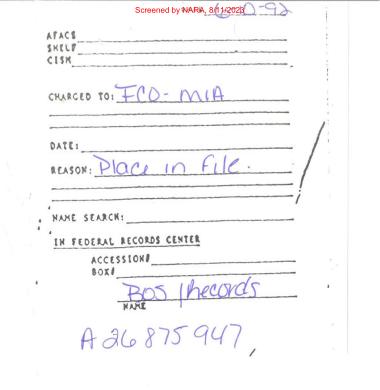 Screened by NARA, 8/11/2023
AFACS
SHELF
CISM
CHARGED TO: FCO-MIA
DATE:
REASON: Place in File.
NAME SEARCH:
IN FEDERAL RECORDS CENTER
ACCESSION#
BOX#
BOS | Records
NAME
A26 875 947